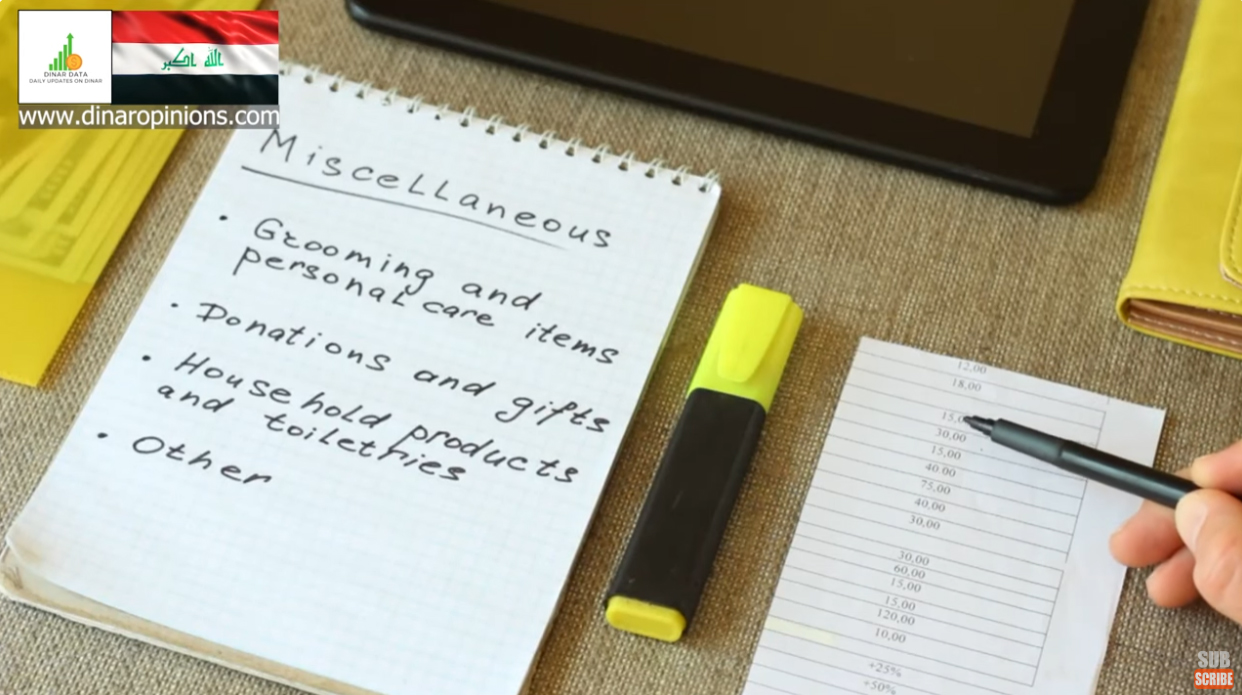 DINAR DATA
DAILY UPDATES ON DINAR
الله اكبر
www.dinaropinions.com
Miscellaneous
• Grooming and
personal care items
• Donations and gifts
• Household products
and toiletries
• Other
12,00
18,00
15,0
30,00
15,00
40.00
75,00
40,00
30,00
30,00
60,00
15,00
15,00
120,00
10,00
+25%
+50%
SUB
SCRIBE